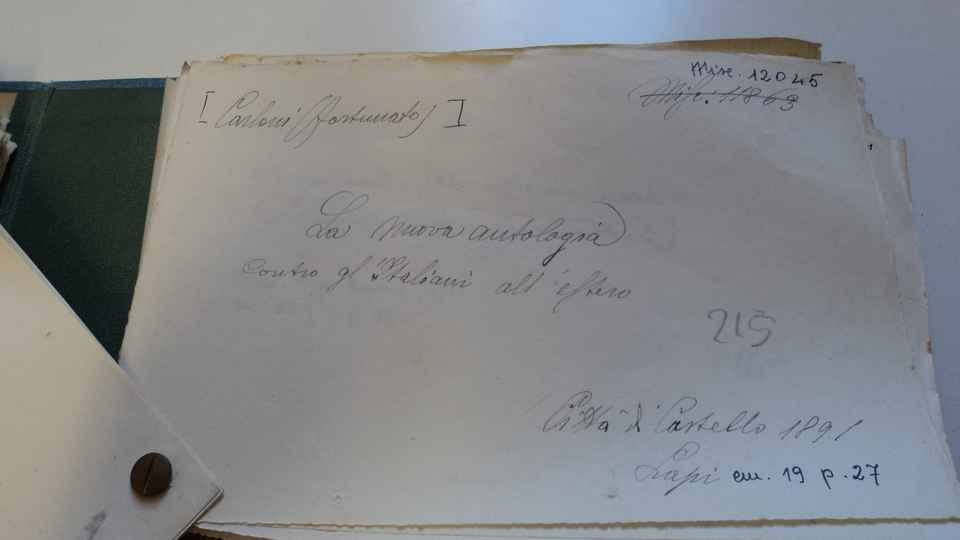 Misc. 12045
Misc. 11863
[Carloni (Fortunato)]
La nuova antologia
contro gl'Italiani all'estero
215
Città di Castello 1891
Lapi em. 19 p. 27